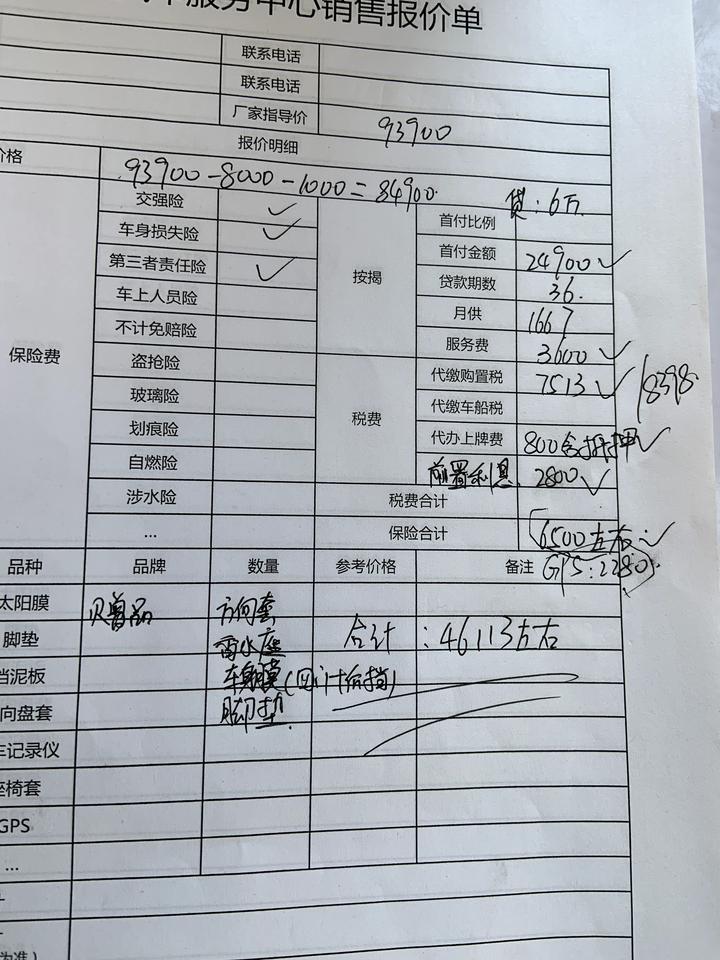 服务中心销售报价单
联系电话
联系电话
厂家指导价 93900
报价明细
价格 93900-8000-1000=84900
贷:6万
保险费
交强险 ✓
车身损失险 ✓
第三者责任险 ✓
车上人员险
不计免赔险
盗抢险
玻璃险
划痕险
自燃险
涉水险
...
按揭
首付比例
首付金额 24900 ✓
贷款期数 36.
月供 1667
服务费 3600 ✓
税费
代缴购置税 7513 ✓ 18398
代缴车船税
代办上牌费 800含抵押 ✓
前置利息 2800 ✓
税费合计
保险合计 6500左右 ✓
品种 品牌 数量 参考价格 备注 GPS:2280
太阳膜 方向套
脚垫 合计:46113左右
挡泥板 车身膜
向盘套 脚垫
车记录仪
座椅套
GPS
...
为准)